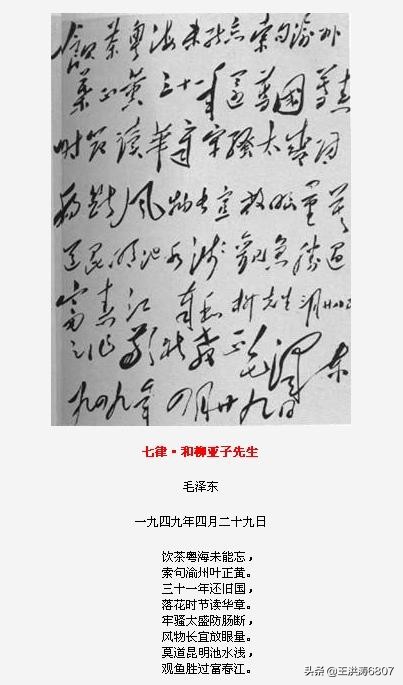 飲茶粤海未能忘索句渝州
葉正黄三十一年還舊國落花
时節读華章牢骚太盛防
腸斷風物长宜放眼量莫
道昆明池水浅觀魚勝過
富春江 奉和柳先生三月廿八日
之作敬祈教正 毛泽东
一九四九年四月廿九日
七律·和柳亚子先生
毛泽东
一九四九年四月二十九日
饮茶粤海未能忘，
索句渝州叶正黄。
三十一年还旧国，
落花时节读华章。
牢骚太盛防肠断，
风物长宜放眼量。
莫道昆明池水浅，
观鱼胜过富春江。
头条 @王洪涛6807